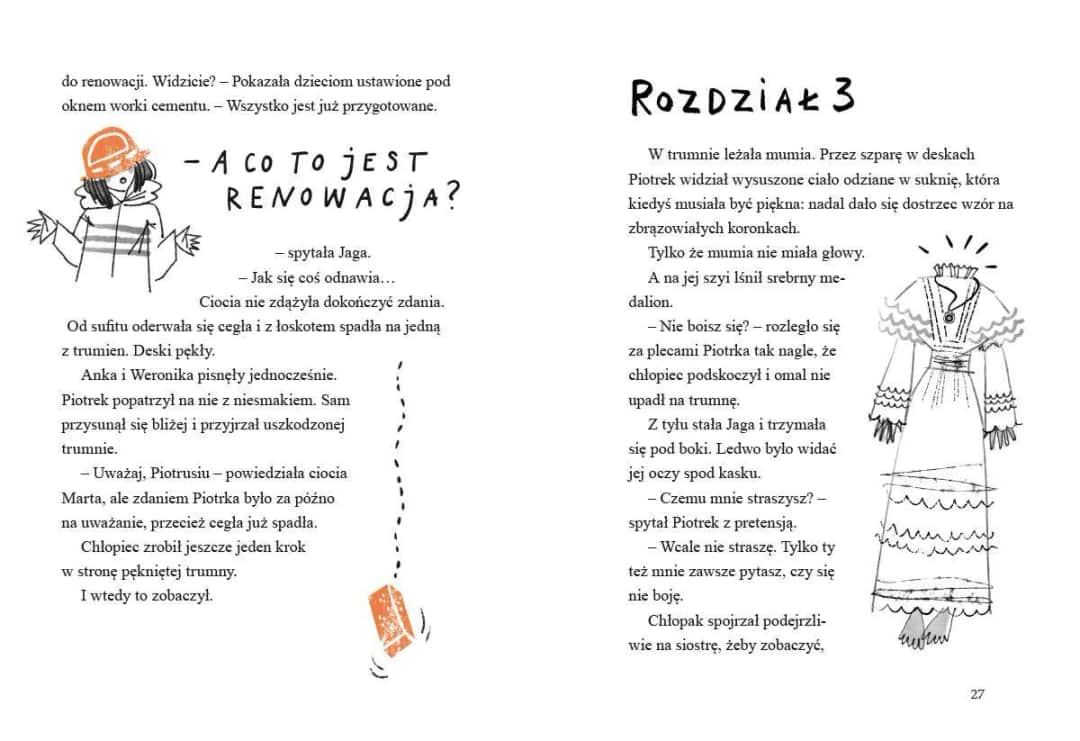 do renowacji. Widzicie? – Pokazała dzieciom ustawione pod
oknem worki cementu. – Wszystko jest już przygotowane.
– A CO TO JEST
RENOWACJA?
– spytała Jaga.
– Jak się coś odnawia…
Ciocia nie zdążyła dokończyć zdania.
Od sufitu oderwała się cegła i z łoskotem spadła na jedną
z trumien. Deski pękły.
Anka i Weronika pisnęły jednocześnie.
Piotrek popatrzył na nie z niesmakiem. Sam
przysunął się bliżej i przyjrzał uszkodzonej
trumnie.
– Uważaj, Piotrusiu – powiedziała ciocia
Marta, ale zdaniem Piotrka było za późno
na uważanie, przecież cegła już spadła.
Chłopiec zrobił jeszcze jeden krok
w stronę pękniętej trumny.
I wtedy to zobaczył.
ROZDZIAŁ 3
W trumnie leżała mumia. Przez szparę w deskach
Piotrek widział wysuszone ciało odziane w suknię, która
kiedyś musiała być piękna: nadal dało się dostrzec wzór na
zbrązowiałych koronkach.
Tylko że mumia nie miała głowy.
A na jej szyi lśnił srebrny me-
dalion.
– Nie boisz się? – rozległo się
za plecami Piotrka tak nagle, że
chłopiec podskoczył i omal nie
upadł na trumnę.
Z tyłu stała Jaga i trzymała
się pod boki. Ledwo było widać
jej oczy spod kasku.
– Czemu mnie straszysz? –
spytał Piotrek z pretensją.
– Wcale nie straszę. Tylko ty
też mnie zawsze pytasz, czy się
nie boję.
Chłopak spojrzał podejrzli-
wie na siostrę, żeby zobaczyć,
27